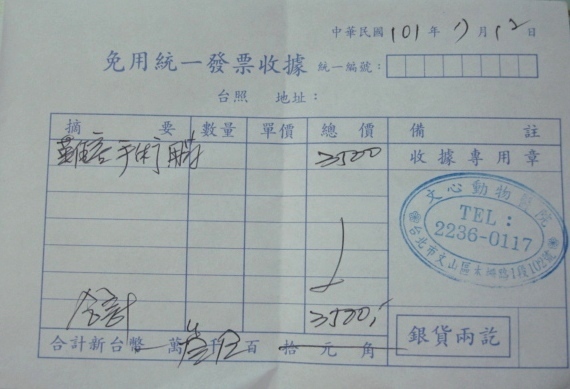 中華民國101年 月12日
免用統一發票收據 統一編號：
台照 地址：
摘要 數量 單價 總價 備註
手術 3500 收據專用章
文心動物醫院
TEL：
2236-0117
台北市文山區木柵路1段102號
合計 3500
銀貨兩訖
合計新台幣 萬 仟 百 拾 元 角